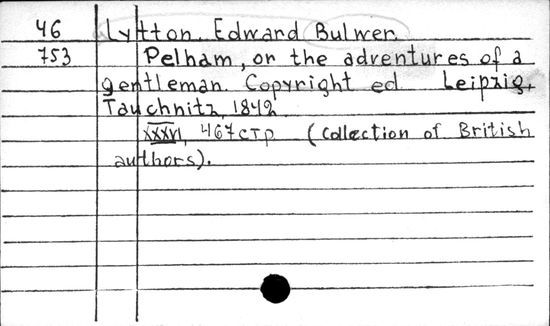 46 Lytton. Edward Bulwer.
753 Pelham, or the adventures of a
gentleman. Copyright ed. Leipzig,
Tauchnitz, 1842.
XXXVI, 467 стр. (Collection of British
authors).